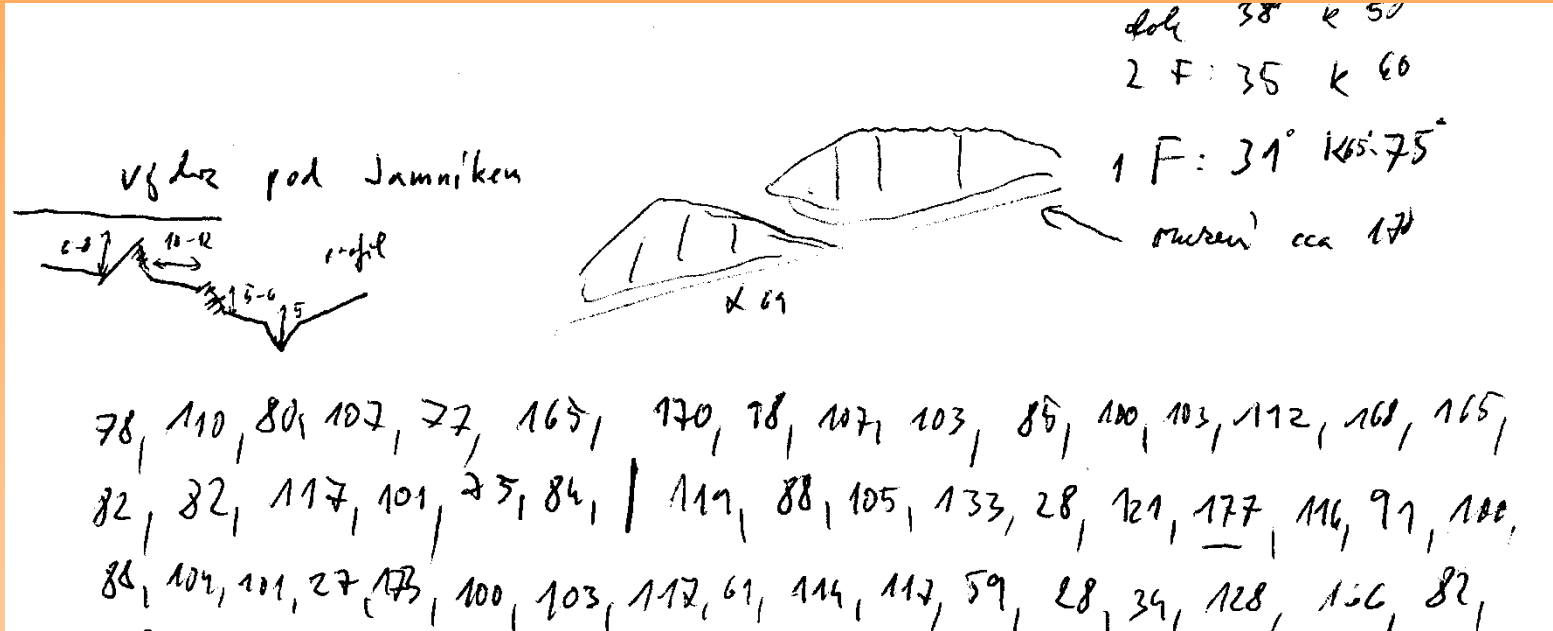 38 k 50
2 F: 35 k 60
1 F: 31° 75°
pod Jamníkem
cca 17°
6-8 10-12
profil
5-6 5
∡ 69
78, 110, 80, 107, 77, 165, 170, 98, 107, 103, 85, 100, 103, 112, 168, 165,
82, 82, 117, 101, 75, 84, | 119, 88, 105, 133, 28, 121, 177, 116, 91, 100,
88, 104, 101, 27, 173, 100, 103, 117, 61, 114, 117, 59, 28, 34, 128, 82,